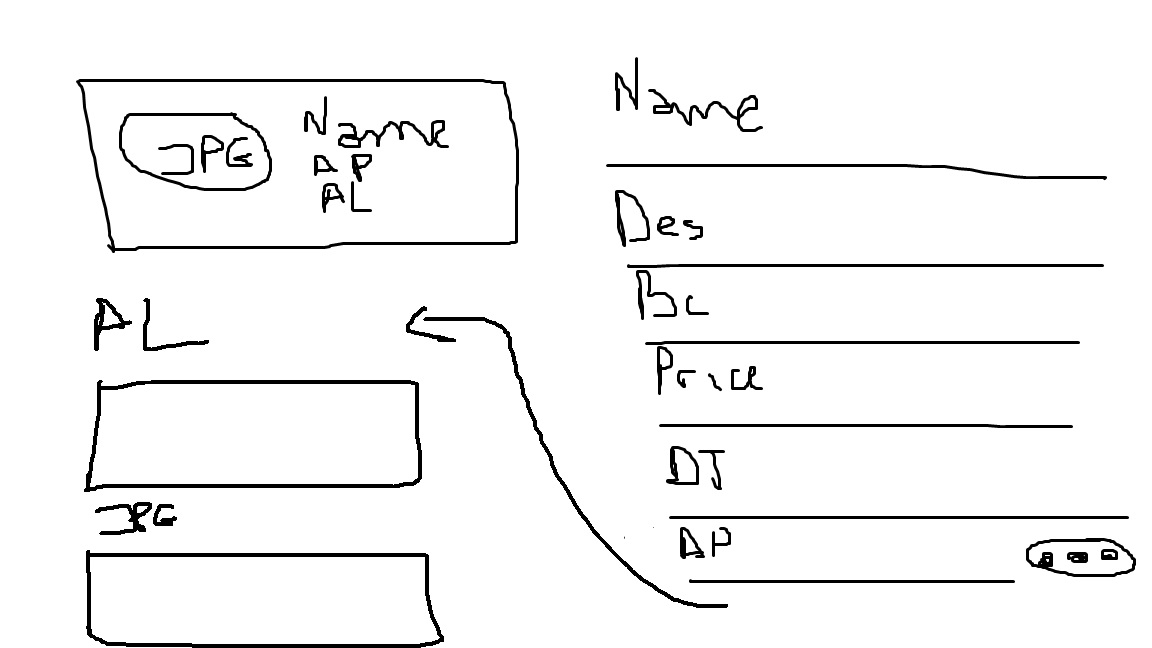 JPG
Name
AP
AL
AL
JPG
Name
Des
Bc
Price
DJ
AP